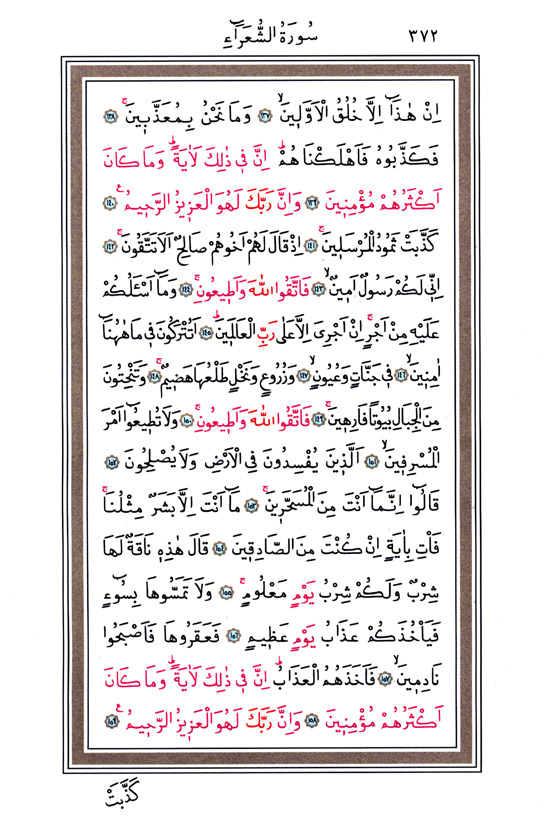 سُورَةُ الشُّعَرَٓاءِ ٣٧٢
اِنْ هٰذَٓا اِلَّا خُلُقُ الْاَوَّل۪ينَۙ ﴿١٣٧﴾ وَمَا نَحْنُ بِمُعَذَّب۪ينَۚ ﴿١٣٨﴾
فَكَذَّبُوهُ فَاَهْلَكْنَاهُمْۜ اِنَّ ف۪ي ذٰلِكَ لَاٰيَةًۜ وَمَا كَانَ
اَكْثَرُهُمْ مُؤْمِن۪ينَ ﴿١٣٩﴾ وَاِنَّ رَبَّكَ لَهُوَ الْعَز۪يزُ الرَّح۪يمُ۟ ﴿١٤٠﴾
كَذَّبَتْ ثَمُودُ الْمُرْسَل۪ينَۚ ﴿١٤١﴾ اِذْ قَالَ لَهُمْ اَخُوهُمْ صَالِحٌ اَلَا تَتَّقُونَۚ ﴿١٤٢﴾
اِنّ۪ي لَكُمْ رَسُولٌ اَم۪ينٌۙ ﴿١٤٣﴾ فَاتَّقُوا اللّٰهَ وَاَط۪يعُونِۚ ﴿١٤٤﴾ وَمَٓا اَسْـَٔلُكُمْ
عَلَيْهِ مِنْ اَجْرٍۚ اِنْ اَجْرِيَ اِلَّا عَلٰى رَبِّ الْعَالَم۪ينَۜ ﴿١٤٥﴾ اَتُتْرَكُونَ ف۪ي مَا هٰهُنَٓا
اٰمِن۪ينَۙ ﴿١٤٦﴾ ف۪ي جَنَّاتٍ وَعُيُونٍۙ ﴿١٤٧﴾ وَزُرُوعٍ وَنَخْلٍ طَلْعُهَا هَض۪يمٌۚ ﴿١٤٨﴾ وَتَنْحِتُونَ
مِنَ الْجِبَالِ بُيُوتًا فَارِه۪ينَۚ ﴿١٤٩﴾ فَاتَّقُوا اللّٰهَ وَاَط۪يعُونِۚ ﴿١٥٠﴾ وَلَا تُط۪يعُٓوا اَمْرَ
الْمُسْرِف۪ينَۙ ﴿١٥١﴾ اَلَّذ۪ينَ يُفْسِدُونَ فِي الْاَرْضِ وَلَا يُصْلِحُونَ ﴿١٥٢﴾
قَالُٓوا اِنَّمَٓا اَنْتَ مِنَ الْمُسَحَّر۪ينَۚ ﴿١٥٣﴾ مَٓا اَنْتَ اِلَّا بَشَرٌ مِثْلُنَاۚ
فَأْتِ بِاٰيَةٍ اِنْ كُنْتَ مِنَ الصَّادِق۪ينَ ﴿١٥٤﴾ قَالَ هٰذِه۪ نَاقَةٌ لَهَا
شِرْبٌ وَلَكُمْ شِرْبُ يَوْمٍ مَعْلُومٍۚ ﴿١٥٥﴾ وَلَا تَمَسُّوهَا بِسُٓوءٍ
فَيَأْخُذَكُمْ عَذَابُ يَوْمٍ عَظ۪يمٍ ﴿١٥٦﴾ فَعَقَرُوهَا فَاَصْبَحُوا
نَادِم۪ينَۙ ﴿١٥٧﴾ فَاَخَذَهُمُ الْعَذَابُۜ اِنَّ ف۪ي ذٰلِكَ لَاٰيَةًۜ وَمَا كَانَ
اَكْثَرُهُمْ مُؤْمِن۪ينَ ﴿١٥٨﴾ وَاِنَّ رَبَّكَ لَهُوَ الْعَز۪يزُ الرَّح۪يمُ۟ ﴿١٥٩﴾
كَذَّبَتْ